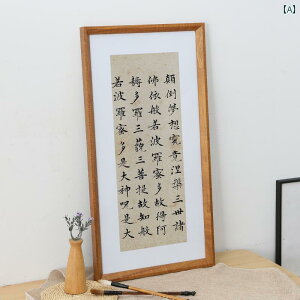 【A】
顛倒夢想究竟涅槃三世諸
佛依般若波羅蜜多故得阿
耨多羅三藐三菩提故知般
若波羅蜜多是大神呪是大